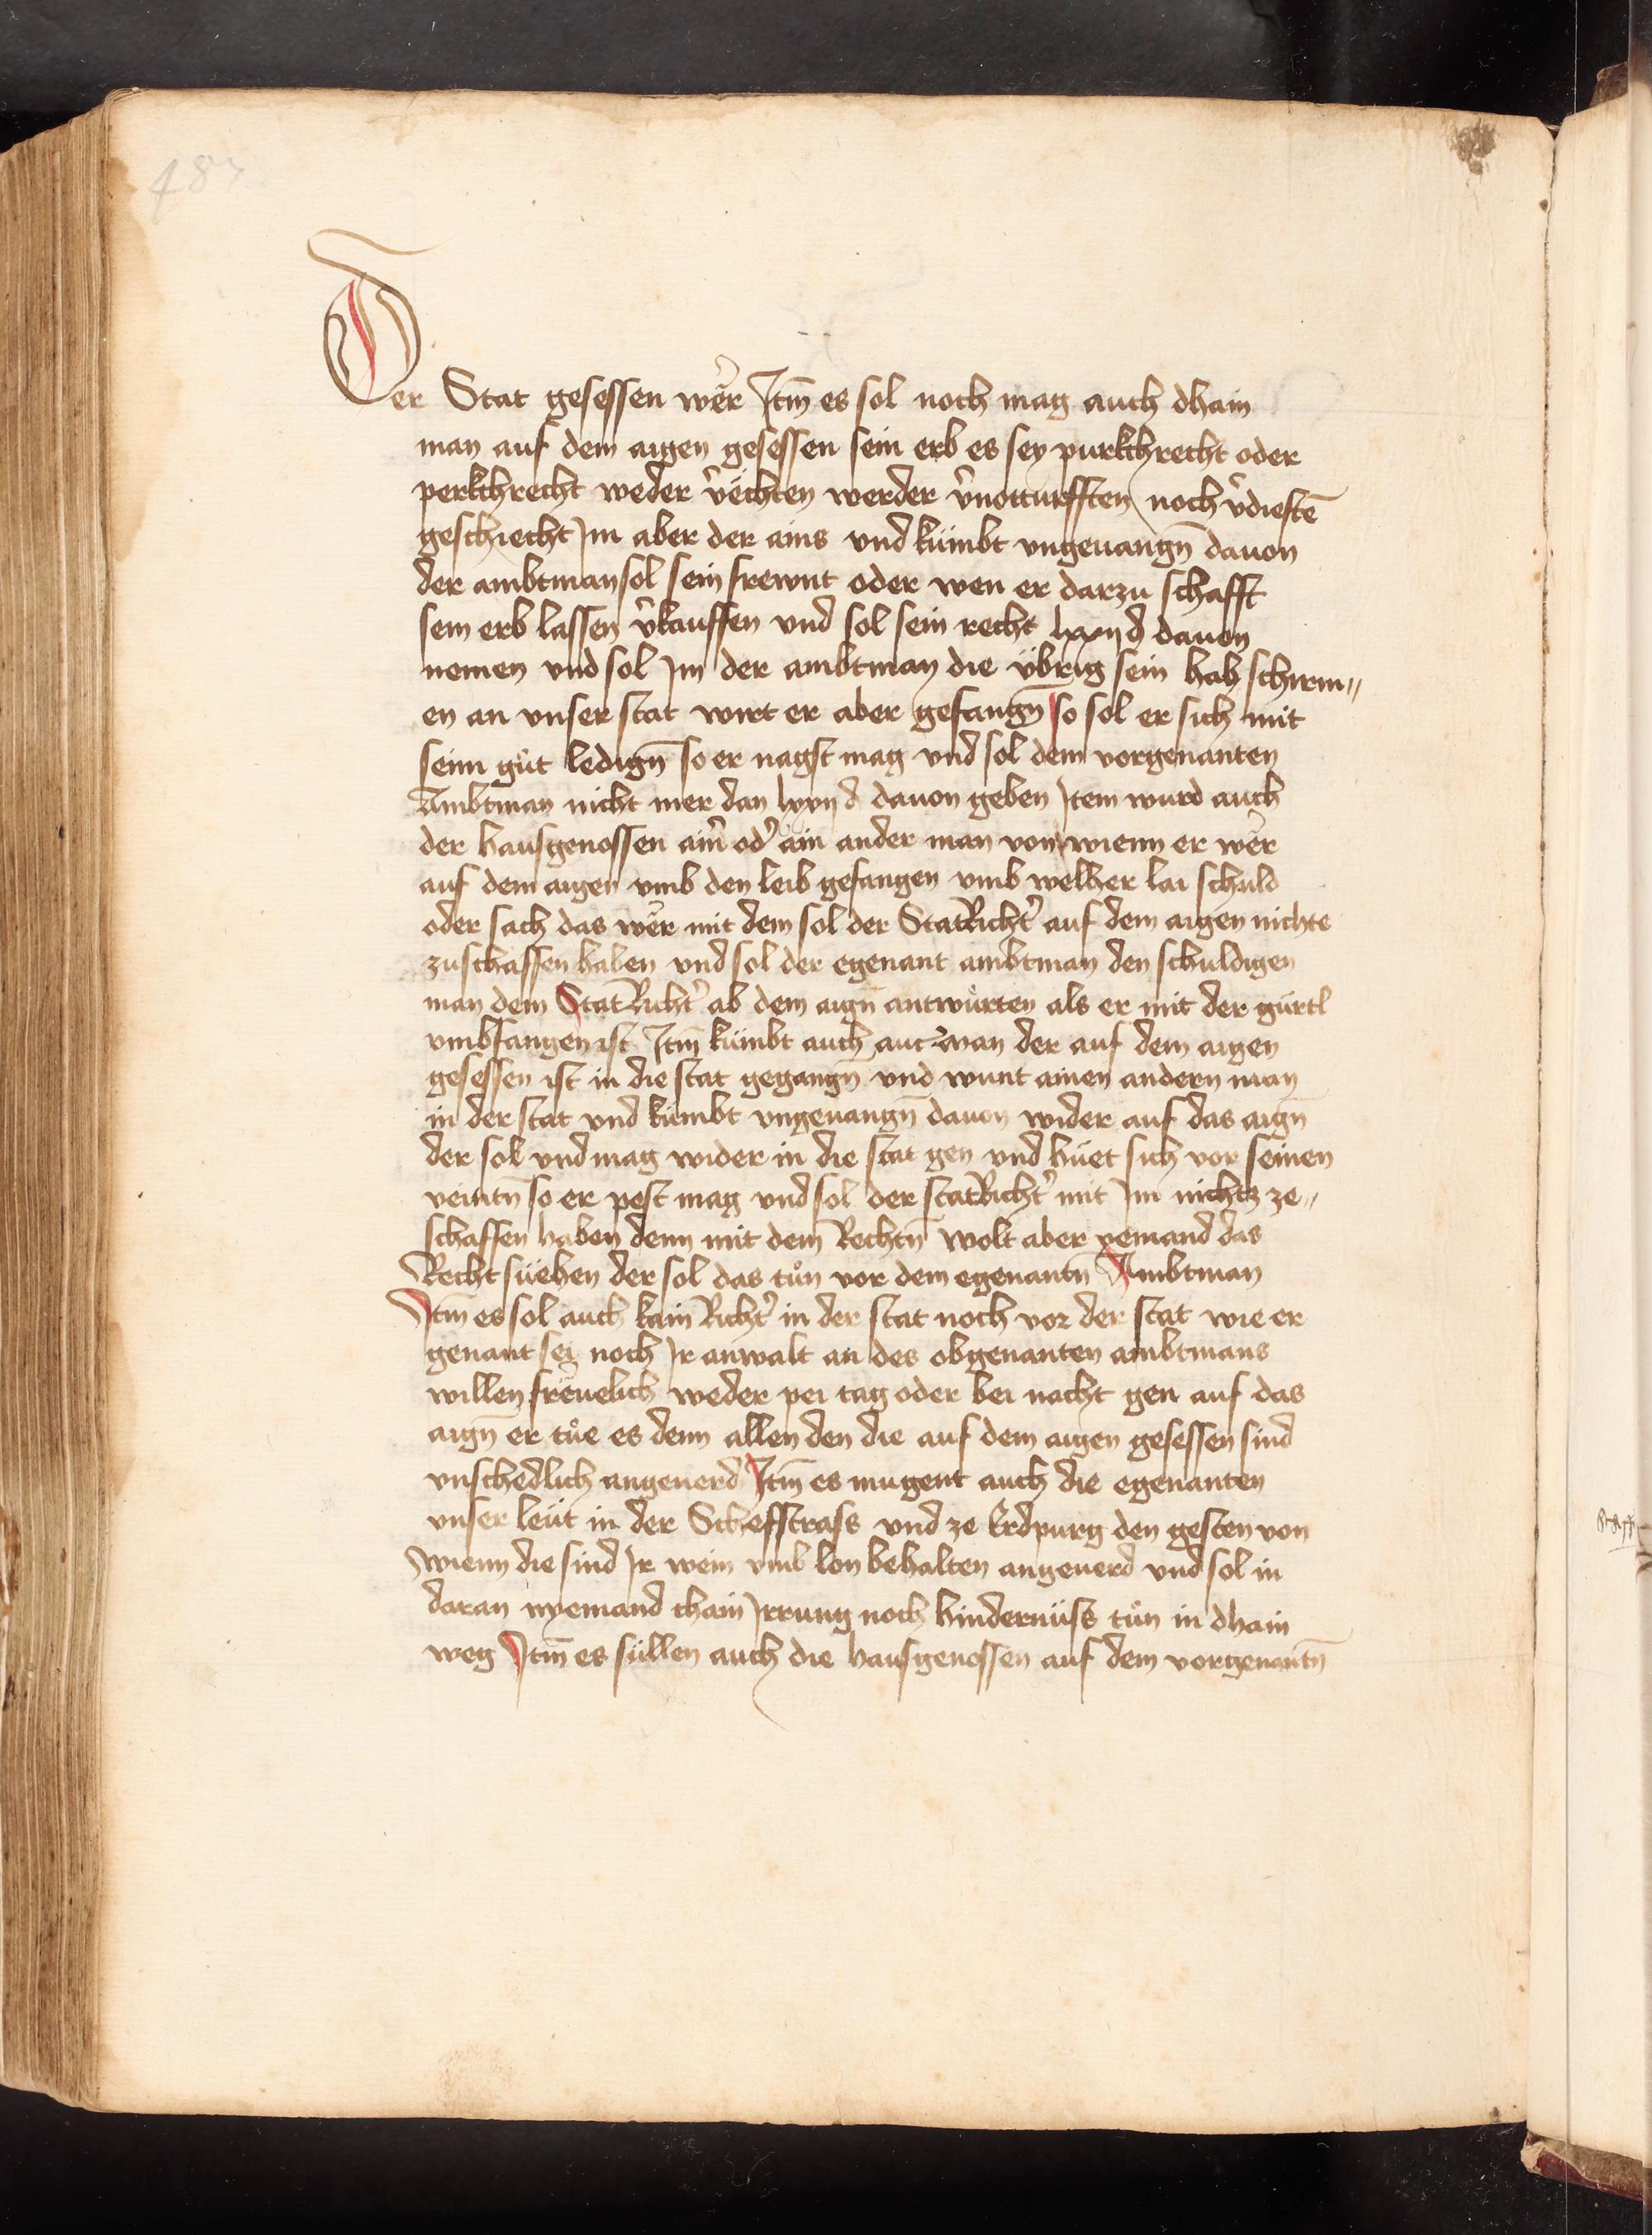 487
Der Stat gesessen wër Itm̄ es sol noch mag auch dhain
man auf dem aigen gesessen sein erb es sey purkchrecht oder
perkchrecht weder v̓ëchten werder v̓notturfften noch v̓diestē
geschiecht Im aber der ains vnd kümbt vngeuangn̄ dauon
der ambtman sol sein frewnt oder wen er darzu schafft
sein erb lassen v̓kauffen vnd sol sein recht lxxij d dauon
nemen vnd sol Im der ambtman die übrig sein hab schirm„
en an vnser stat wirt er aber gefangn̄ so sol er sich mit
seim gůt ledign̄ so er nagst mag vnd sol dem vorgenanten
Ambtman nicht mer dan lxxij d dauon geben Item wurd auch
der hausgenossen ain̓ od̓ ain ander man von wienn er wër
auf dem aigen vmb den leib gefangen vmb welher lai schuld
oder sach das wër mit dem sol der StatRicht̓ auf dem aigen nichte
zuschaffen haben vnd sol der egenant ambtman den schuldigen
man dem StatRicht̓ ab dem aign̄ antwürten als er mit der gürtl
vmbfangen ist Itm̄ kümbt auch man der auf dem aigen
gesessen ist in die stat gegangn̄ vnd wunt ainen andern man
in der stat vnd kümbt vngeuangn̄ dauon wider auf das aign̄
der sol vnd mag wider in die stat gen vnd hüet sich vor seinen
veintn̄ so er pest mag vnd sol der statRicht̓ mit Im nichtz ze„
schaffen haben denn mit dem Rechtn̄ wolt aber yemand das
Recht süehen der sol das tůn vor dem egenantn̄ Ambtman
Itm̄ es sol auch kain Richt̓ in der stat noch vor der stat wie er
genant sei noch Ir anwalt an des obgenanten ambtmans
willen freuelich weder pei tag oder bei nacht gen auf das
aign̄ er tůe es denn allen den die auf dem aigen gesessen sind
vnschedlich angeuerd Itm̄ es mugent auch die egenanten
vnser leüt in der Schefstrass vnd ze Erdpurg den gesten von
wienn die sind Ir wein vmb lon behalten angeuerd vnd sol in
daran nyemand chain Irrung noch hindernüss tůn in dhain
weg Itm̄ es süllen auch die hausgenossen auf dem vorgenantn̄